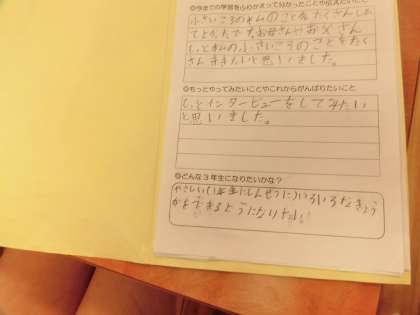 ●今までの学習をふりかえって分かったことや伝えたいこと
小さいころのわたしのことをたくさんしれ
てよかったです。お母さんやお父さん
もっと私の小さいころのことをたく
さんききたいと思いました。
●もっとやってみたいことやこれからがんばりたいこと
もっとインタービューをしてみたい
と思いました。
●どんな3年生になりたいかな?
やさしい1年生にしんせつにいろいろなきょう
かができるようになりたい!